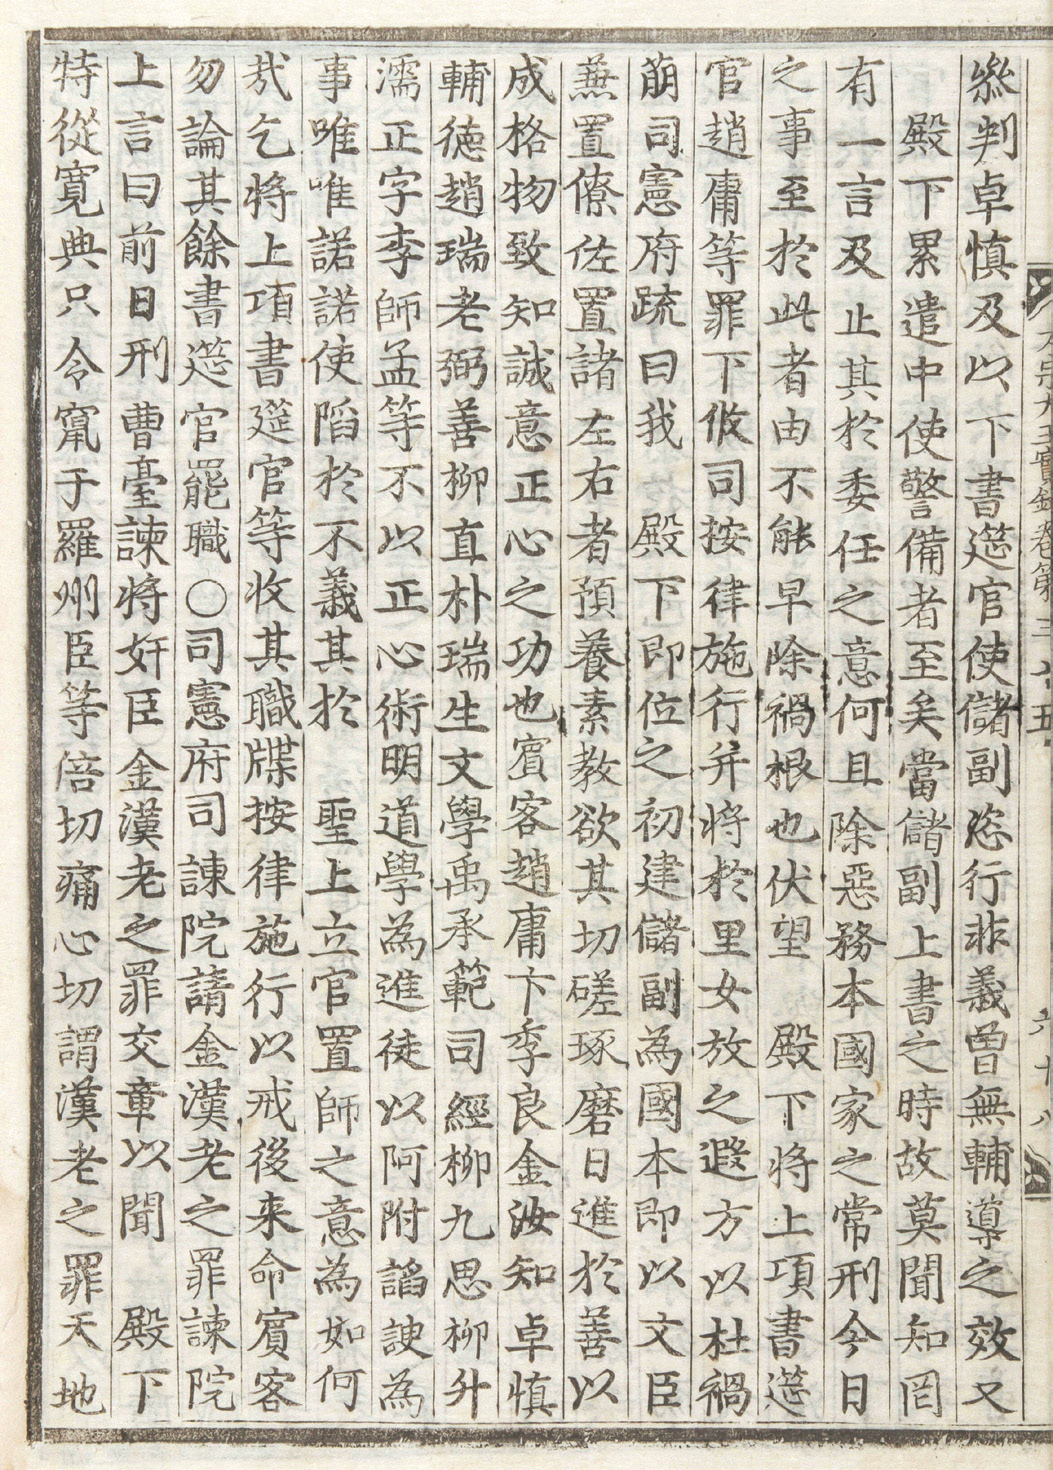 叅判卓愼及以下書筵官使儲副恣行非義曾無輔導之效又
殿下累遣中使警備者至矣當儲副上書之時故莫聞知罔
有一言及止其於委任之意何且除惡務本國家之常刑今日
之事至於此者由不能早除禍根也伏望 殿下將上項書筵
官趙庸等罪下攸司按律施行并將於里女放之遐方以杜禍
萠司憲府䟽曰我 殿下即位之初建儲副為國本即以文臣
兼置僚佐置諸左右者預養素教欲其切磋琢磨日進於善以
成格物致知誠意正心之功也賓客趙庸卞季良金汝知卓愼
輔德趙瑞老弼善柳直朴瑞生文學禹承範司經柳九思柳升
濡正字李師孟等不以正心術明道學為進徒以阿附謟諛為
事唯唯諾諾使陷於不義其於 聖上立官置師之意為如何
㢤乞將上項書筵官等收其職牒按律施行以戒後来命賓客
勿論其餘書筵官罷職○司憲府司諫院請金漢老之罪諫院
上言曰前日刑曹臺諫將奸臣金漢老之罪交章以聞 殿下
特從寬典只令竄于羅州臣等倍切痛心切謂漢老之罪天地